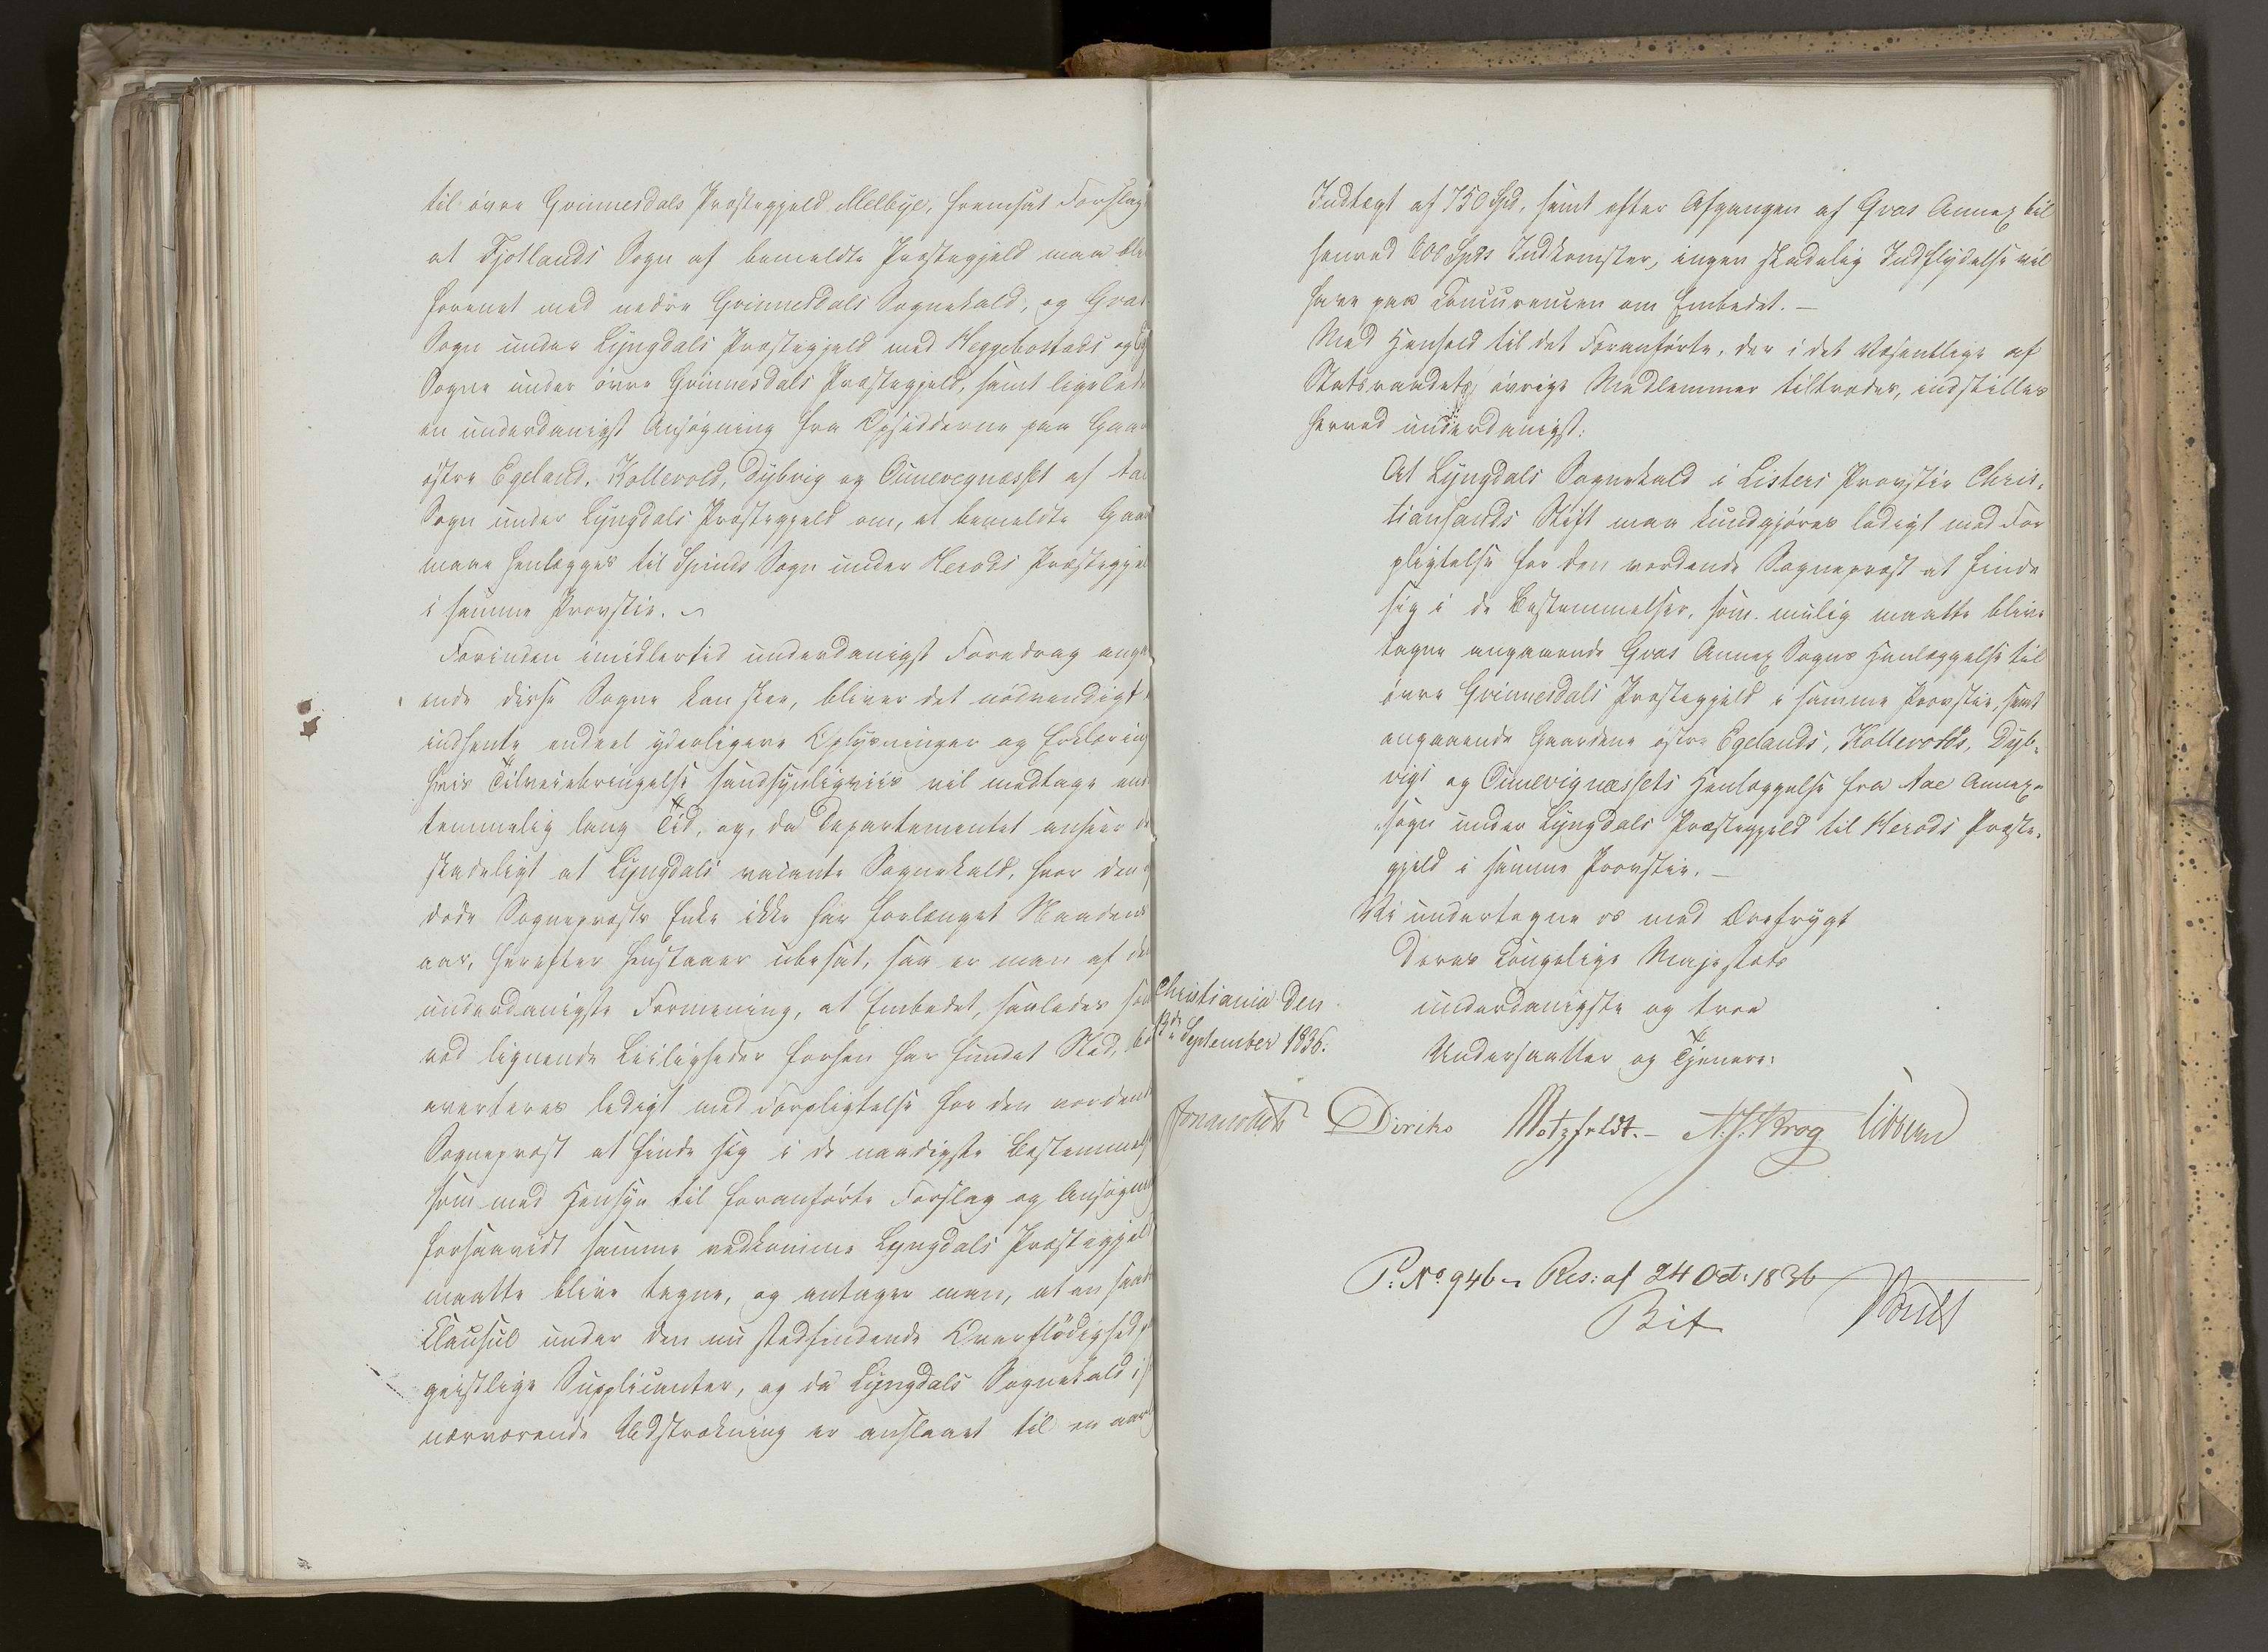 til övre Qvinnesdals Præstegjeld Melbye, fremsat Forslag
at Fjotlands Sogn af bemeldte Præstegjeld maa bli
forenet med nedre Qvinnesdals Sognekald, og Qvas
Sogn under Lyngdals Præstegjeld med Heggebostads og
Sogne under övre Qvinnesdals Præstegjeld, samt ligelede
en underdanigst Ansögning fra Opsidderne paa Gaar
östre Egeland, Kollevold, Dybvig og Ounevignæsset af Aae
Sogn under Lyngdals Præstegjeld om, at bemeldte Gaar
maae henlægges til Spinds Sogn under Herods Præstegjel
i samme Provstie.
Forinden imidlertid underdanigst Foredrag anga
ende disse Sogne kan skee, bliver det nödvendigt
indhente endeel yderligere Oplysninger og Erklæring
hvis Tilveiebringelse sandsynligviis vil medtage en
temmelig lang Tid, og, da Departementet anseer de
skadeligt at Lyngdals vacante Sognekald, hvor den
döde Sognepræsts Enke ikke har forlænget Naadens
aar, herefter henstaaer ubesat, saa er man af den
underdanigste Formening, at Embedet, saaledes som
ved lignende Leiligheder forhen har fundet Sted, bör
averteres ledigt med Forpligtelse for den vordende
Sognepræst at finde sig i de naadigste Bestemmels
som med Hensyn til foranförte Forslag og Ansögning
forsaavidt samme vedkomme Lyngdals Præstegjeld
maatte blive tagne, og antager man, at en saad
Clausul under den nu stedfindende Overflödighed p
geistlige Supplicanter, og da Lyngdals Sognekald i s
nærværende Udstrækning er anslaaet til en aarl
Indtægt af 750 Spd, samt efter Afgangen af Qvas Annex til
henved 600 Spds Indkomster, ingen skadelig Indflydelse vil
have paa Concurencen om Embedet. —
Med Henhold til det Foranförte, der i det Væsentlige af
Statsraadets övrige Medlemmer tiltrædes, indstilles
herved underdanigst:
At Lyngdals Sognekald i Listers Provstie Chris-
tiansands Stift maa kundgjöres ledigt med For
pligtelse for den vordende Sognepræst at finde
sig i de Bestemmelser, som mulig maatte blive
tagne angaaende Qvas Annex Sogns Henlæggelse til
övre Qvinnesdals Præstegjeld i samme Provstie, samt
angaaende Gaardene östre Egelands, Kollevolds, Dyb-
vigs og Ounevignæssets Henlæggelse fra Aae Annex-
sogn under Lyngdals Præstegjeld til Herods Præste-
gjeld i samme Provstie. —
Vi undertegne os med Ærefrygt
Deres Kongelige Majestæts
underdanigste og troe
Undersaatter og Tjenere:
Christiania den
13de September 1836.
Diriks Motzfeldt. — N. J. Krog Sibbern
P: No 946 – Res: af 24 Oct: 1836
Bit